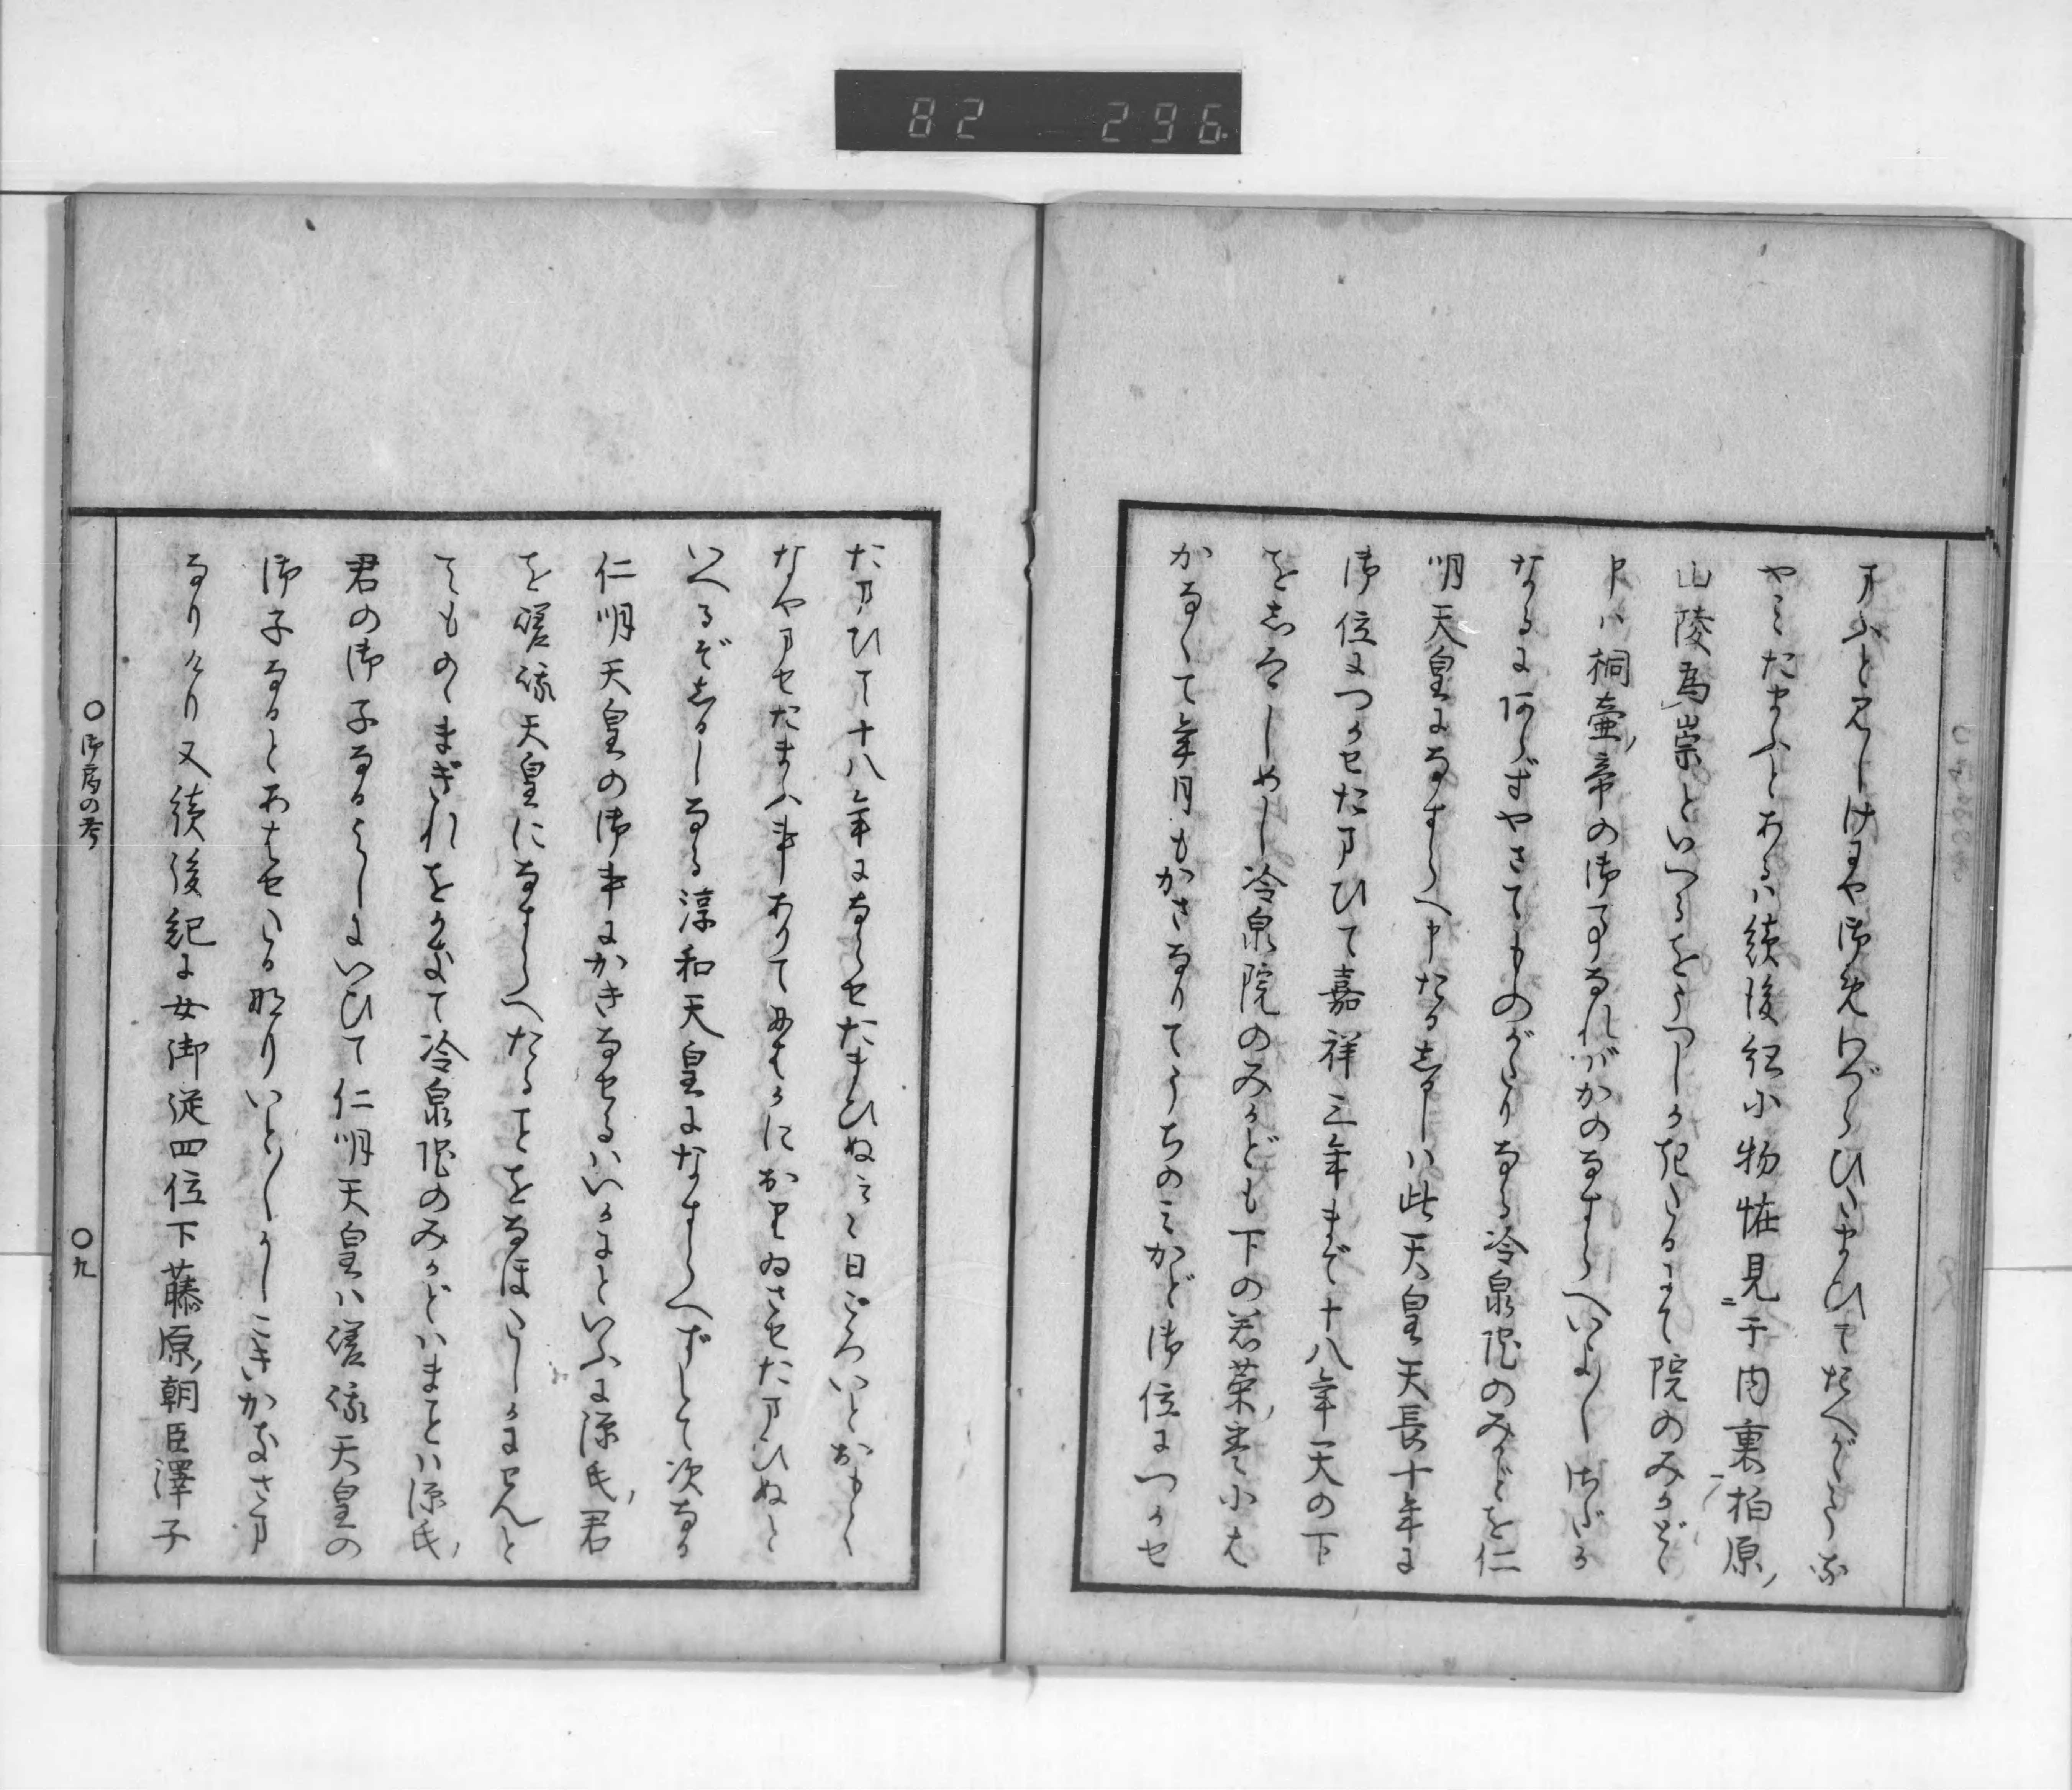 82 296
まふと見しけにや御めわづらひたまひてたへがたうな
やみたまふとあるは続後紀小物恠見_ニ于内裏_一柏原ノ
山陵為崇といへるをうつしかきたるにて院のみかどと
申は桐壺ノ帝の御事なればかのなすらへいよ〳〵たしか
なるにあらずやさてものがたりなる冷泉院のみかどを仁
明天皇になすらへ申たるよしは此天皇天長十年に
御位につかせたまひて嘉祥三年まで十八年天の下
をしろしめし冷泉院のみかども下の若菜ノ巻小は
かなくて年月もかさなりてうちのみかど御位につかせ
たまひて十八年にならせたまひぬミミ日ごろいとおもく
なやませたまふ事ありてにはかにおりゐさせたまひぬと
いへるぞよしなる淳和天皇になすらへずして次なる
仁明天皇の御事にかきなせるはいかにといふに源氏ノ君
を嵯峨天皇になすらへたることをなほたしかにせんと
てものゝまぎれをかまへて冷泉院のみかどはまことは源氏ノ
君の御子なるよしにいひて仁明天皇は嵯峨天皇の
御子なるとあはせたる也けりいと〳〵かしこきかきさま
なりけり又続後紀に女御従四位下藤原ノ朝臣澤子
〇御局の考
〇九